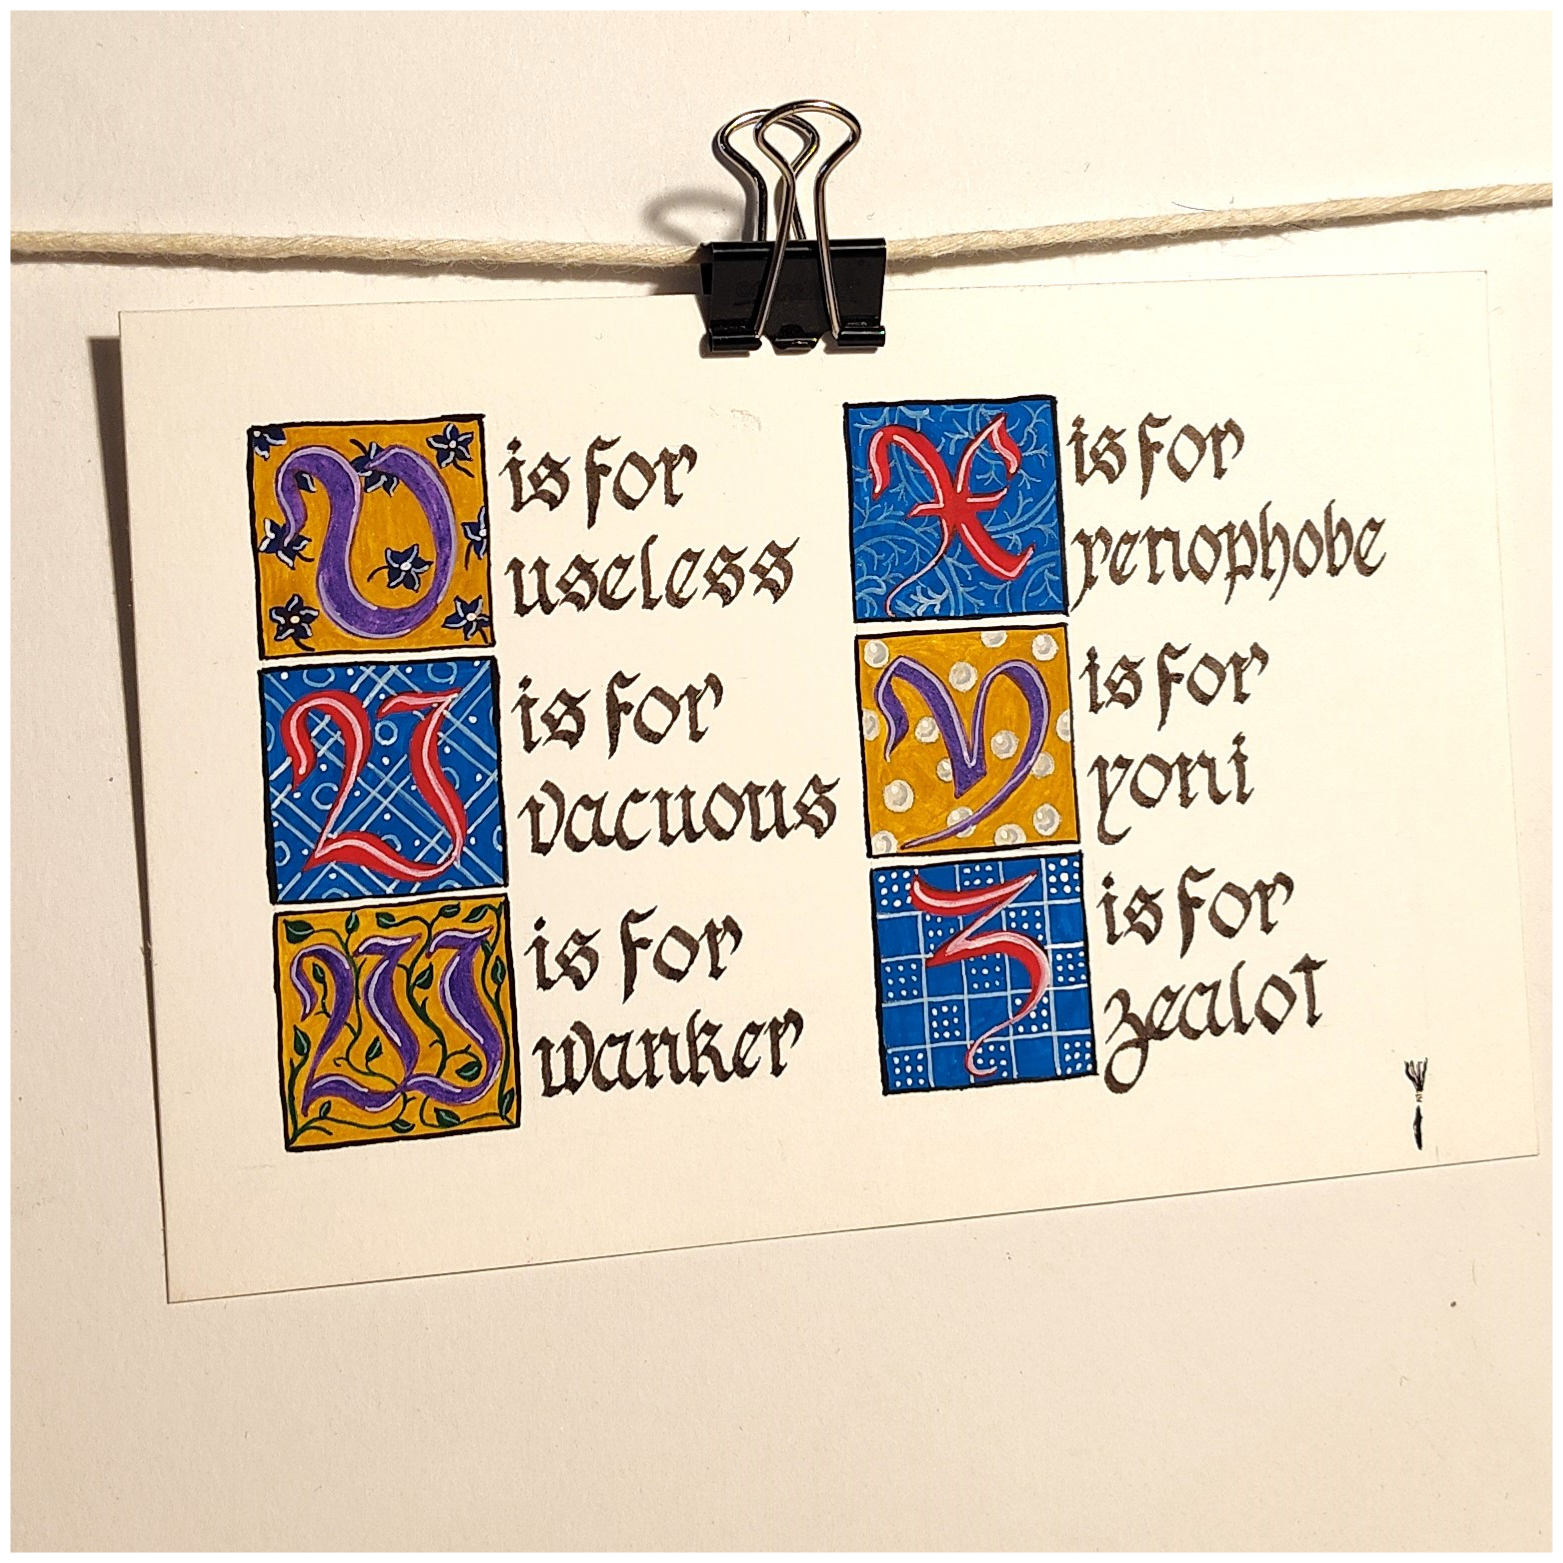 U is for
useless
V is for
vacuous
W is for
wanker
X is for
xenophobe
Y is for
yoni
Z is for
zealot